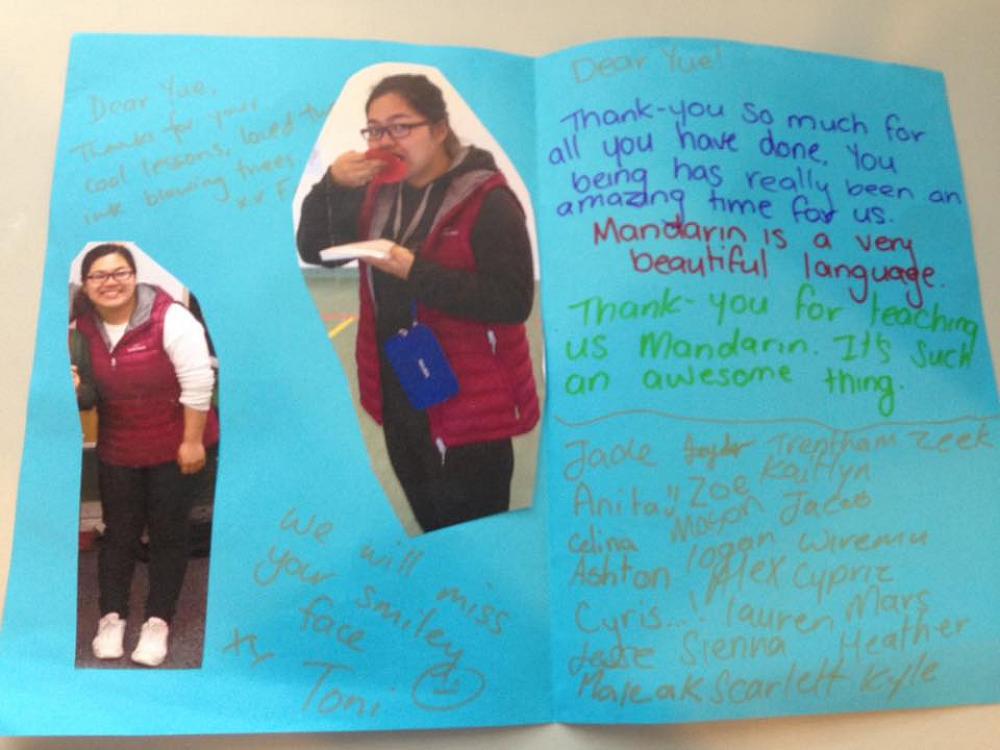 Dear Yue,
Thanks for your
cool lessons, loved the
ink blowing trees.
xx F
We will miss
your smiley
face
xx Toni
Dear Yue!
Thank-you so much for
all you have done. You
being has really been an
amazing time for us.
Mandarin is a very
beautiful language.
Thank-you for teaching
us Mandarin. It's such
an awesome thing.
Jade Trentham Zeek
Anita Zoe Kaitlyn
Celina Jacob
Ashton logan Wiremu
Alex Cypriz
Cyris...! lauren Mars
Sienna Heather
Scarlett Kyle